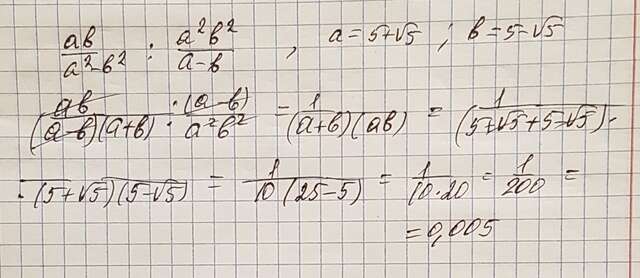 ab/(a²-b²) : a²b²/(a-b) , a=5+√5 ; b=5-√5
ab/((a-b)(a+b)) · (a-b)/(a²b²) = 1/((a+b)(ab)) = 1/(5+√5+5-√5) ·
· (5+√5)(5-√5) = 1/(10(25-5)) = 1/(10·20) = 1/200 =
= 0,005